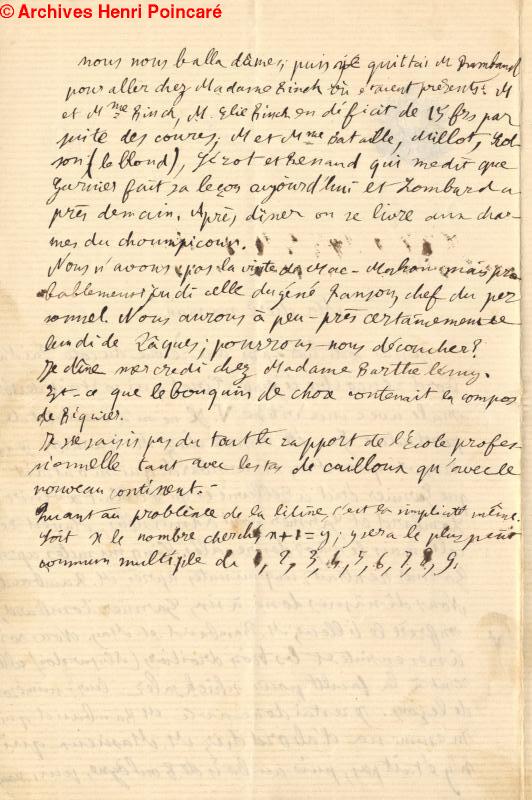 © Archives Henri Poincaré
nous nous balladâmes; puis je quittai M Rambaud
pour aller chez Madame Rinck où étaient présents: M
et Mme Rinck, M. Elie Rinck en déficit de 15 frs par
suite des courses; M et Mme Bataille, Millot,
son (le blond), et Renaud qui me dit que
Garnier fait sa leçon aujourd'hui et Lombard a
près demain. Après dîner on se livre aux char
mes du
Nous n'avons pas la visite de Mac-Mahon mais pro
bablement Jeudi celle du géné Ranson, chef du per
sonnel. Nous aurons à peu-près certainement le
lundi de Pâques; pourrons-nous découcher?
Je dîne mercredi chez Madame Barthelemy.
Est-ce que le bouquin de choa contenait la compos
de Réquier.
Je ne saisis pas du tout le rapport de l'Ecole profes
sionnelle tant avec les tas de cailloux qu'avec le
nouveau continent.-
Quant au problème de la c'est la simplicité même.
Soit x le nombre cherché x+1=y; y sera le plus petit
commun multiple de 1, 2, 3, 4, 5, 6, 7, 8, 9.